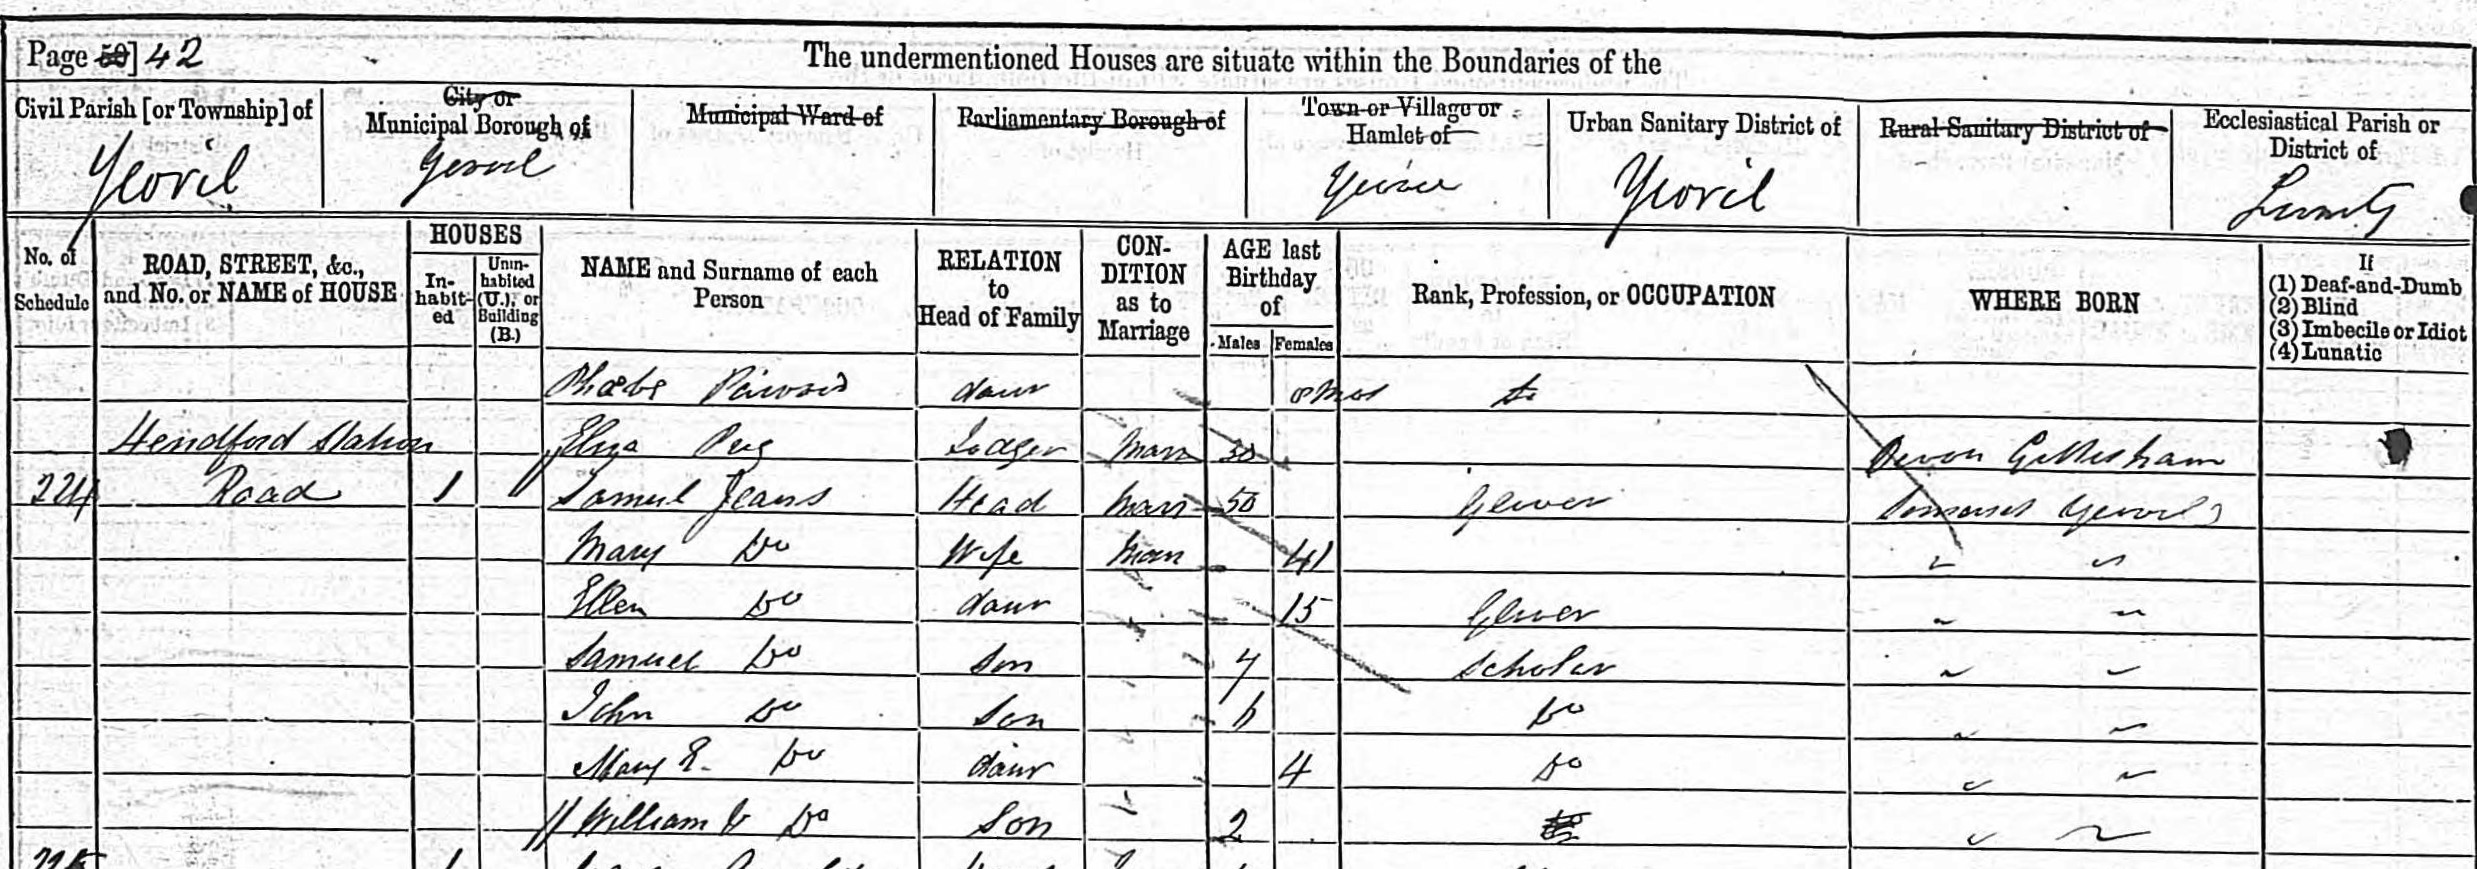 Page 50] 42
The undermentioned Houses are situate within the Boundaries of the
Civil Parish [or Township] of
City or Municipal Borough of
Municipal Ward of
Parliamentary Borough of
Town or Village or Hamlet of
Urban Sanitary District of
Rural Sanitary District of
Ecclesiastical Parish or District of
Yeovil Yeovil Yeovil Yeovil
No. of Schedule
ROAD, STREET, &c., and No. or NAME of HOUSE
HOUSES
In-habit-ed
Unin-habited (U.), or Building (B.)
NAME and Surname of each Person
RELATION to Head of Family
CON-DITION as to Marriage
AGE last Birthday of
Males Females
Rank, Profession, or OCCUPATION
WHERE BORN
If
(1) Deaf-and-Dumb
(2) Blind
(3) Imbecile or Idiot
(4) Lunatic
Phœbe daur 8 Mos
Hendford Station Eliza Lodger Marr 30 Devon
224 Road 1 Samuel Jeans Head Marr 50 Glover Somerset Yeovil
Mary Do Wife Marr 41 " "
Ellen Do daur 15 Glover " "
Samuel Do Son 7 Scholar " "
John Do Son 6 Do " "
Mary E. Do daur 4 Do " "
William Do Son 2 " "
225 1